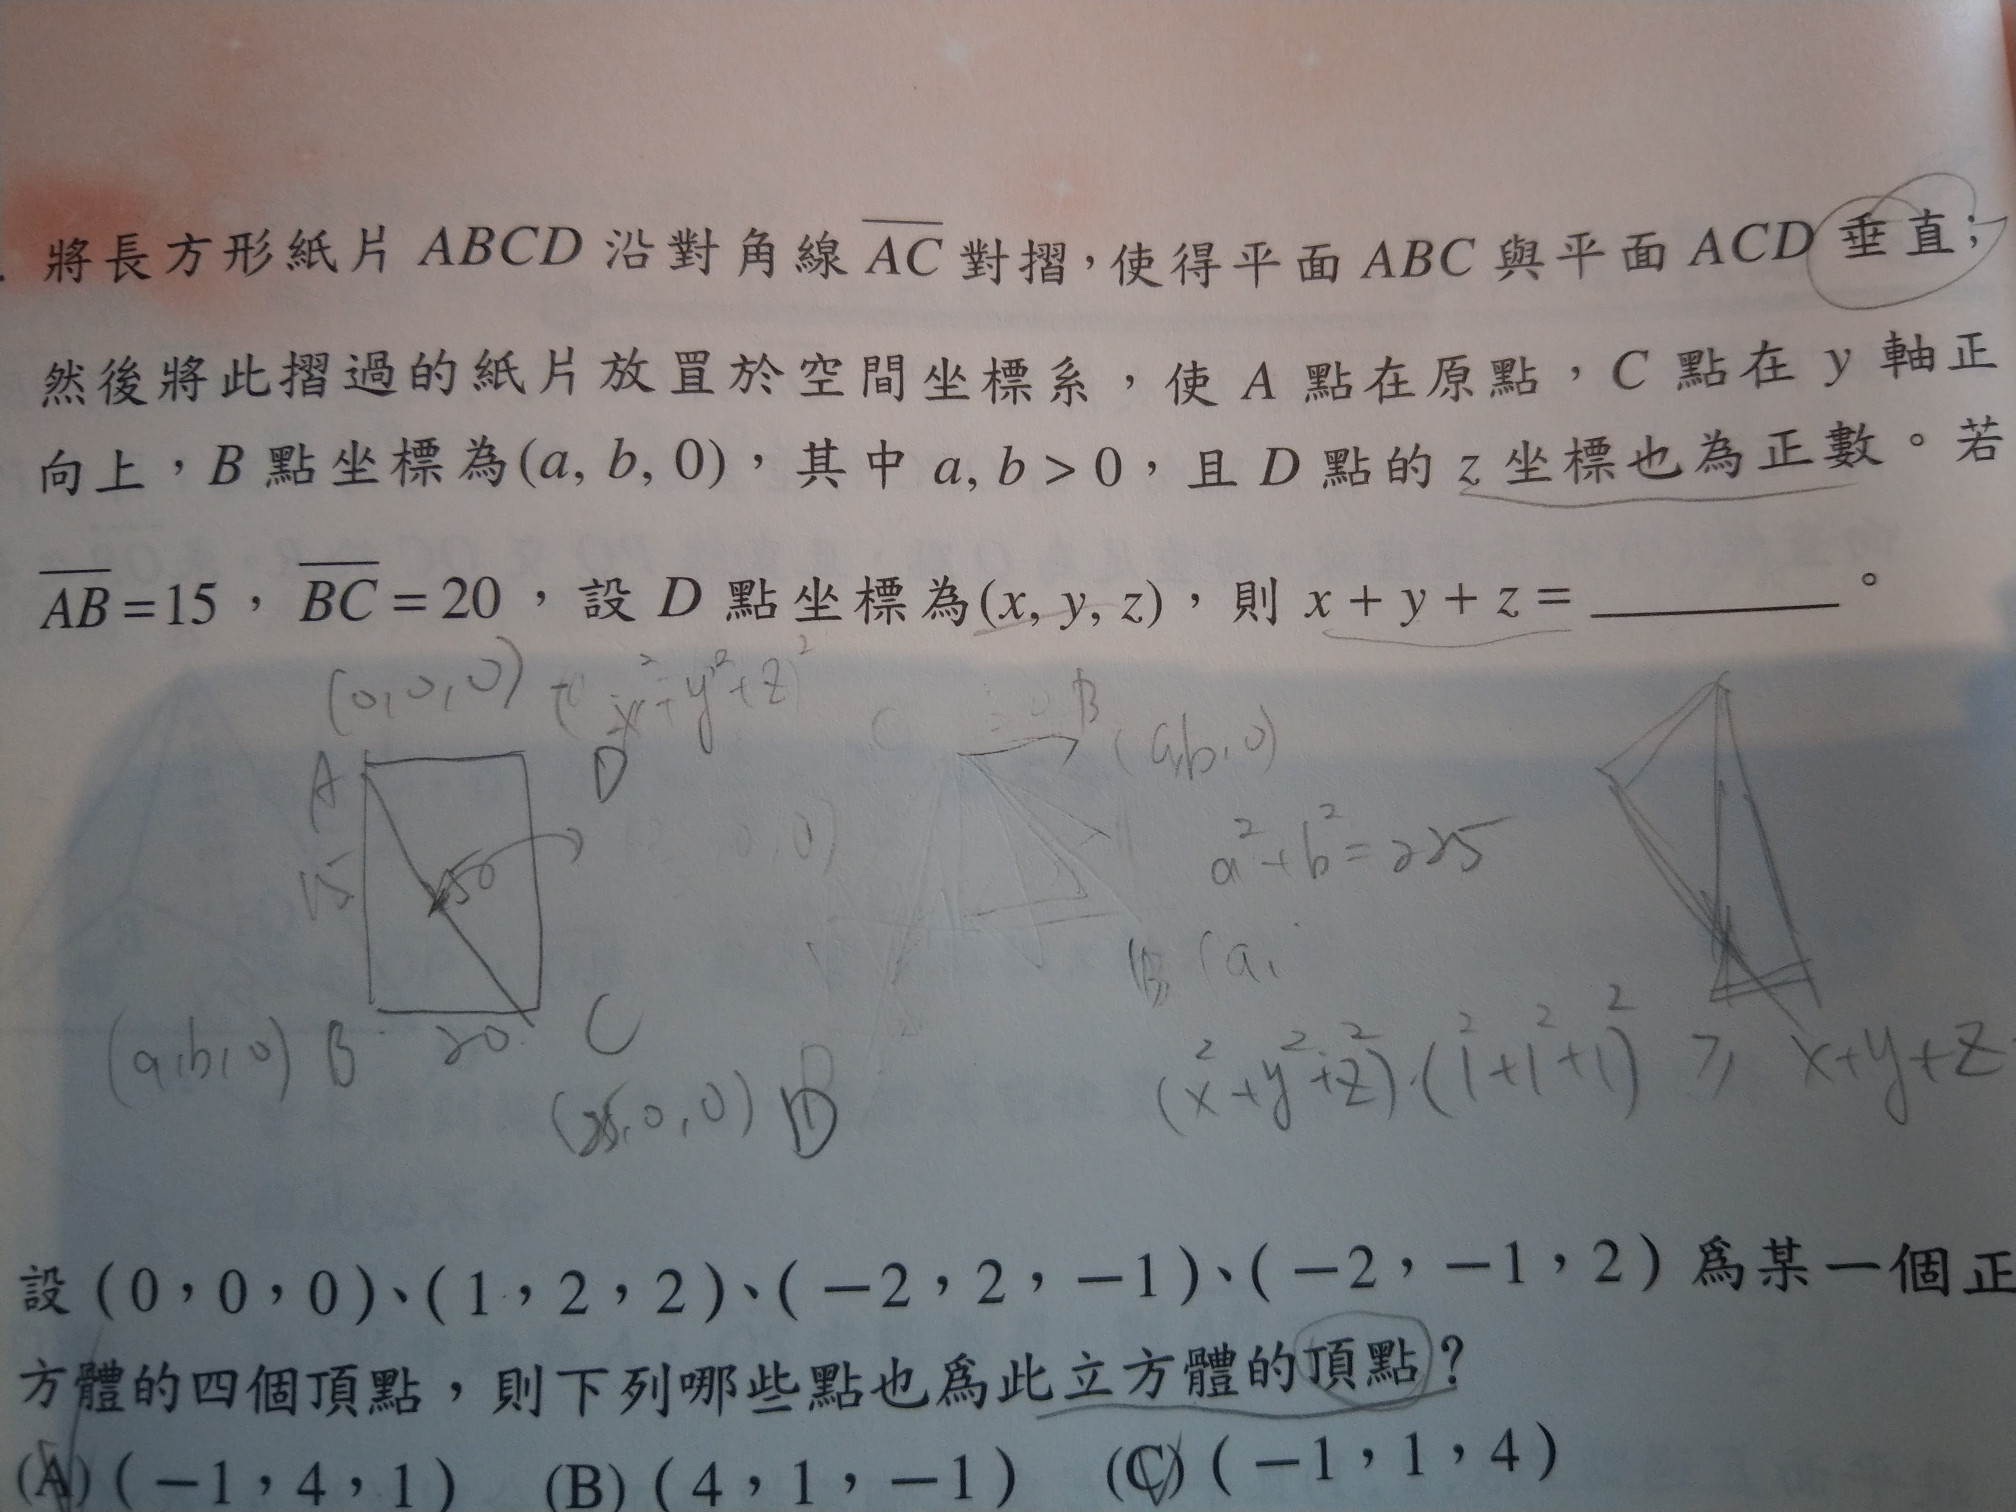 將長方形紙片 ABCD 沿對角線 AC 對摺，使得平面 ABC 與平面 ACD 垂直；
然後將此摺過的紙片放置於空間坐標系，使 A 點在原點，C 點在 y 軸正
向上，B 點坐標為(a, b, 0)，其中 a, b > 0，且 D 點的 z 坐標也為正數。若
AB = 15，BC = 20，設 D 點坐標為(x, y, z)，則 x + y + z = ________。
(0,0,0)
x²+y²+z²
B
A
D
(a,b,0)
15
a²+b²=225
(a,
(a,b,0) B 20 C
(25,0,0) D
(x²+y²+z²)·(1²+1²+1²) ≥ x+y+z
設(0，0，0)、(1，2，2)、(−2，2，−1)、(−2，−1，2)爲某一個正
方體的四個頂點，則下列哪些點也爲此立方體的頂點？
(A)(−1，4，1) (B)(4，1，−1) (C)(−1，1，4)